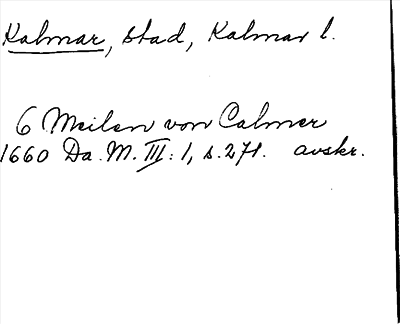 Kalmar, stad, Kalmar l.
6 Meilen von Calmer
1660 Da. M. III: 1, s. 271. avskr.